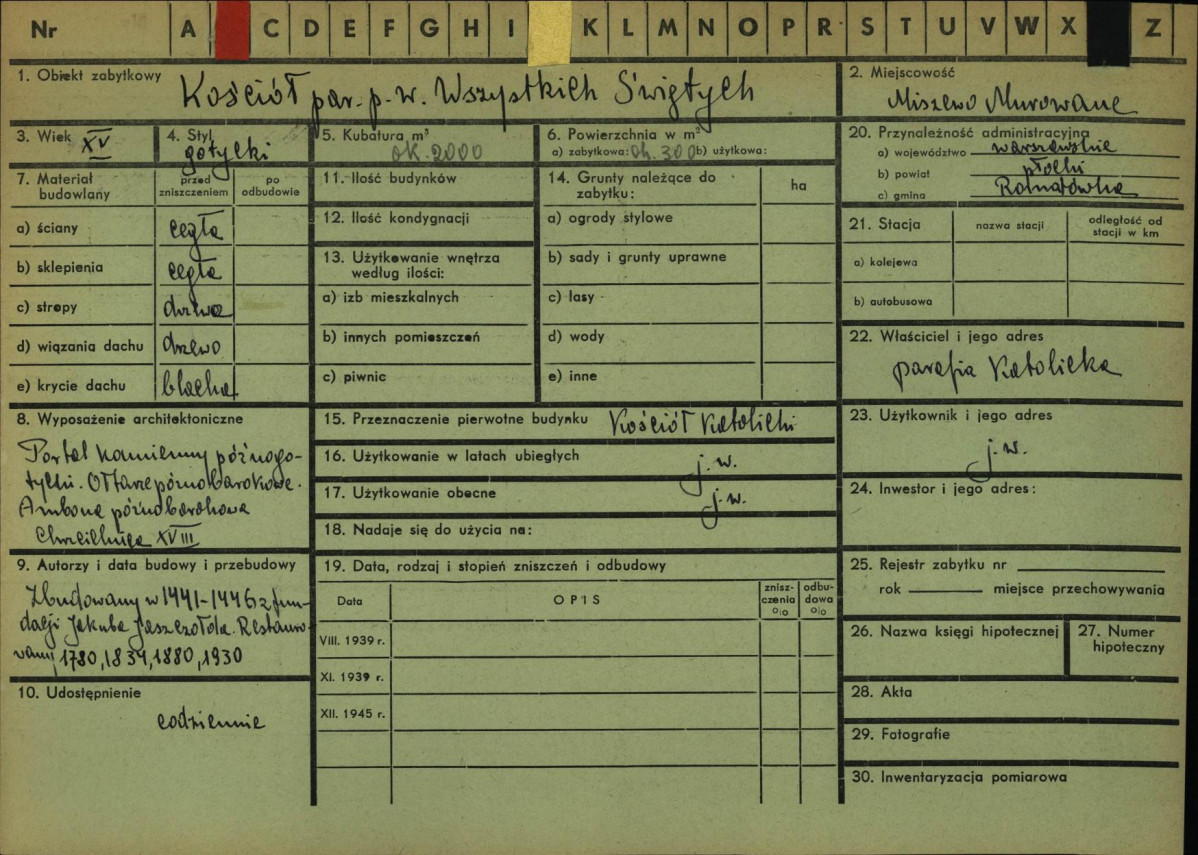 Nr A C D E F G H I K L M N O P R S T U V W X Z
1. Obiekt zabytkowy Kościół par. p. w. Wszystkich Świętych
2. Miejscowość
Miszewo Murowane
3. Wiek XV
4. Styl gotycki
5. Kubatura m³
ok. 2000
6. Powierzchnia w m²
a) zabytkowa: ok. 300 b) użytkowa:
20. Przynależność administracyjna
a) województwo warszawskie
b) powiat płocki
c) gmina
7. Materiał budowlany
przed zniszczeniem
po odbudowie
a) ściany cegła
b) sklepienia cegła
c) stropy drzewo
d) wiązania dachu drzewo
e) krycie dachu blacha
11. Ilość budynków
12. Ilość kondygnacji
13. Użytkowanie wnętrza
według ilości:
a) izb mieszkalnych
b) innych pomieszczeń
c) piwnic
14. Grunty należące do
zabytku:
ha
a) ogrody stylowe
b) sady i grunty uprawne
c) lasy
d) wody
e) inne
21. Stacja
nazwa stacji
odległość od
stacji w km
a) kolejowa
b) autobusowa
22. Właściciel i jego adres
parafia Katolicka
8. Wyposażenie architektoniczne
Portal kamienny późnogo-
tycki. Ołtarze późnobarokowe.
Ambona późnobarokowa
Chrzcielnica XVIII
15. Przeznaczenie pierwotne budynku Kościół Katolicki
16. Użytkowanie w latach ubiegłych j. w.
17. Użytkowanie obecne j. w.
18. Nadaje się do użycia na:
23. Użytkownik i jego adres
j. w.
24. Inwestor i jego adres:
9. Autorzy i data budowy i przebudowy
Zbudowany w 1441-1446 z fun-
dacji Jakuba Jaszczołda. Restauro-
wany 1780, 1834, 1880, 1930
10. Udostępnienie
codziennie
19. Data, rodzaj i stopień zniszczeń i odbudowy
Data
OPIS
znisz-
czenia
o/o
odbu-
dowa
o/o
VIII. 1939 r.
XI. 1939 r.
XII. 1945 r.
25. Rejestr zabytku nr
rok miejsce przechowywania
26. Nazwa księgi hipotecznej
27. Numer
hipoteczny
28. Akta
29. Fotografie
30. Inwentaryzacja pomiarowa